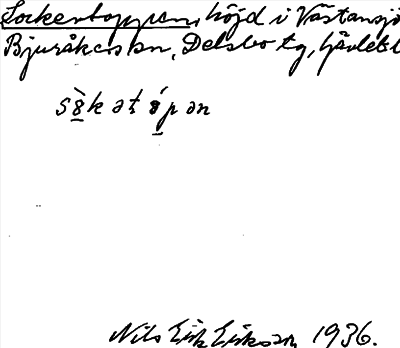 Sockertoppen, höjd i Västansjö
Bjuråkers sn, Delsbo tg, Gävlebl
sò̤kətópən
Nils Erik Eriksson 1936.